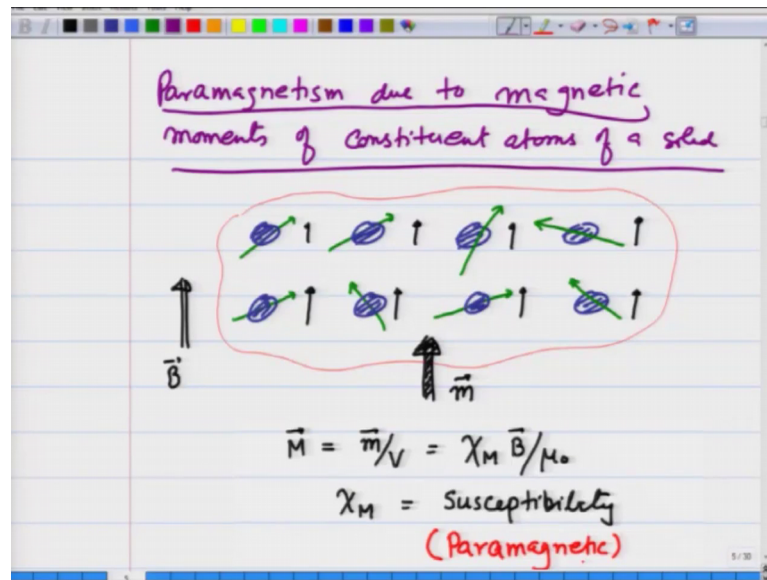 Paramagnetism due to magnetic
moments of constituent atoms of a solid
B⃗
m⃗
M⃗ = m⃗/V = χ_M B⃗/μ₀
χ_M = Susceptibility
(Paramagnetic)
5/30
5